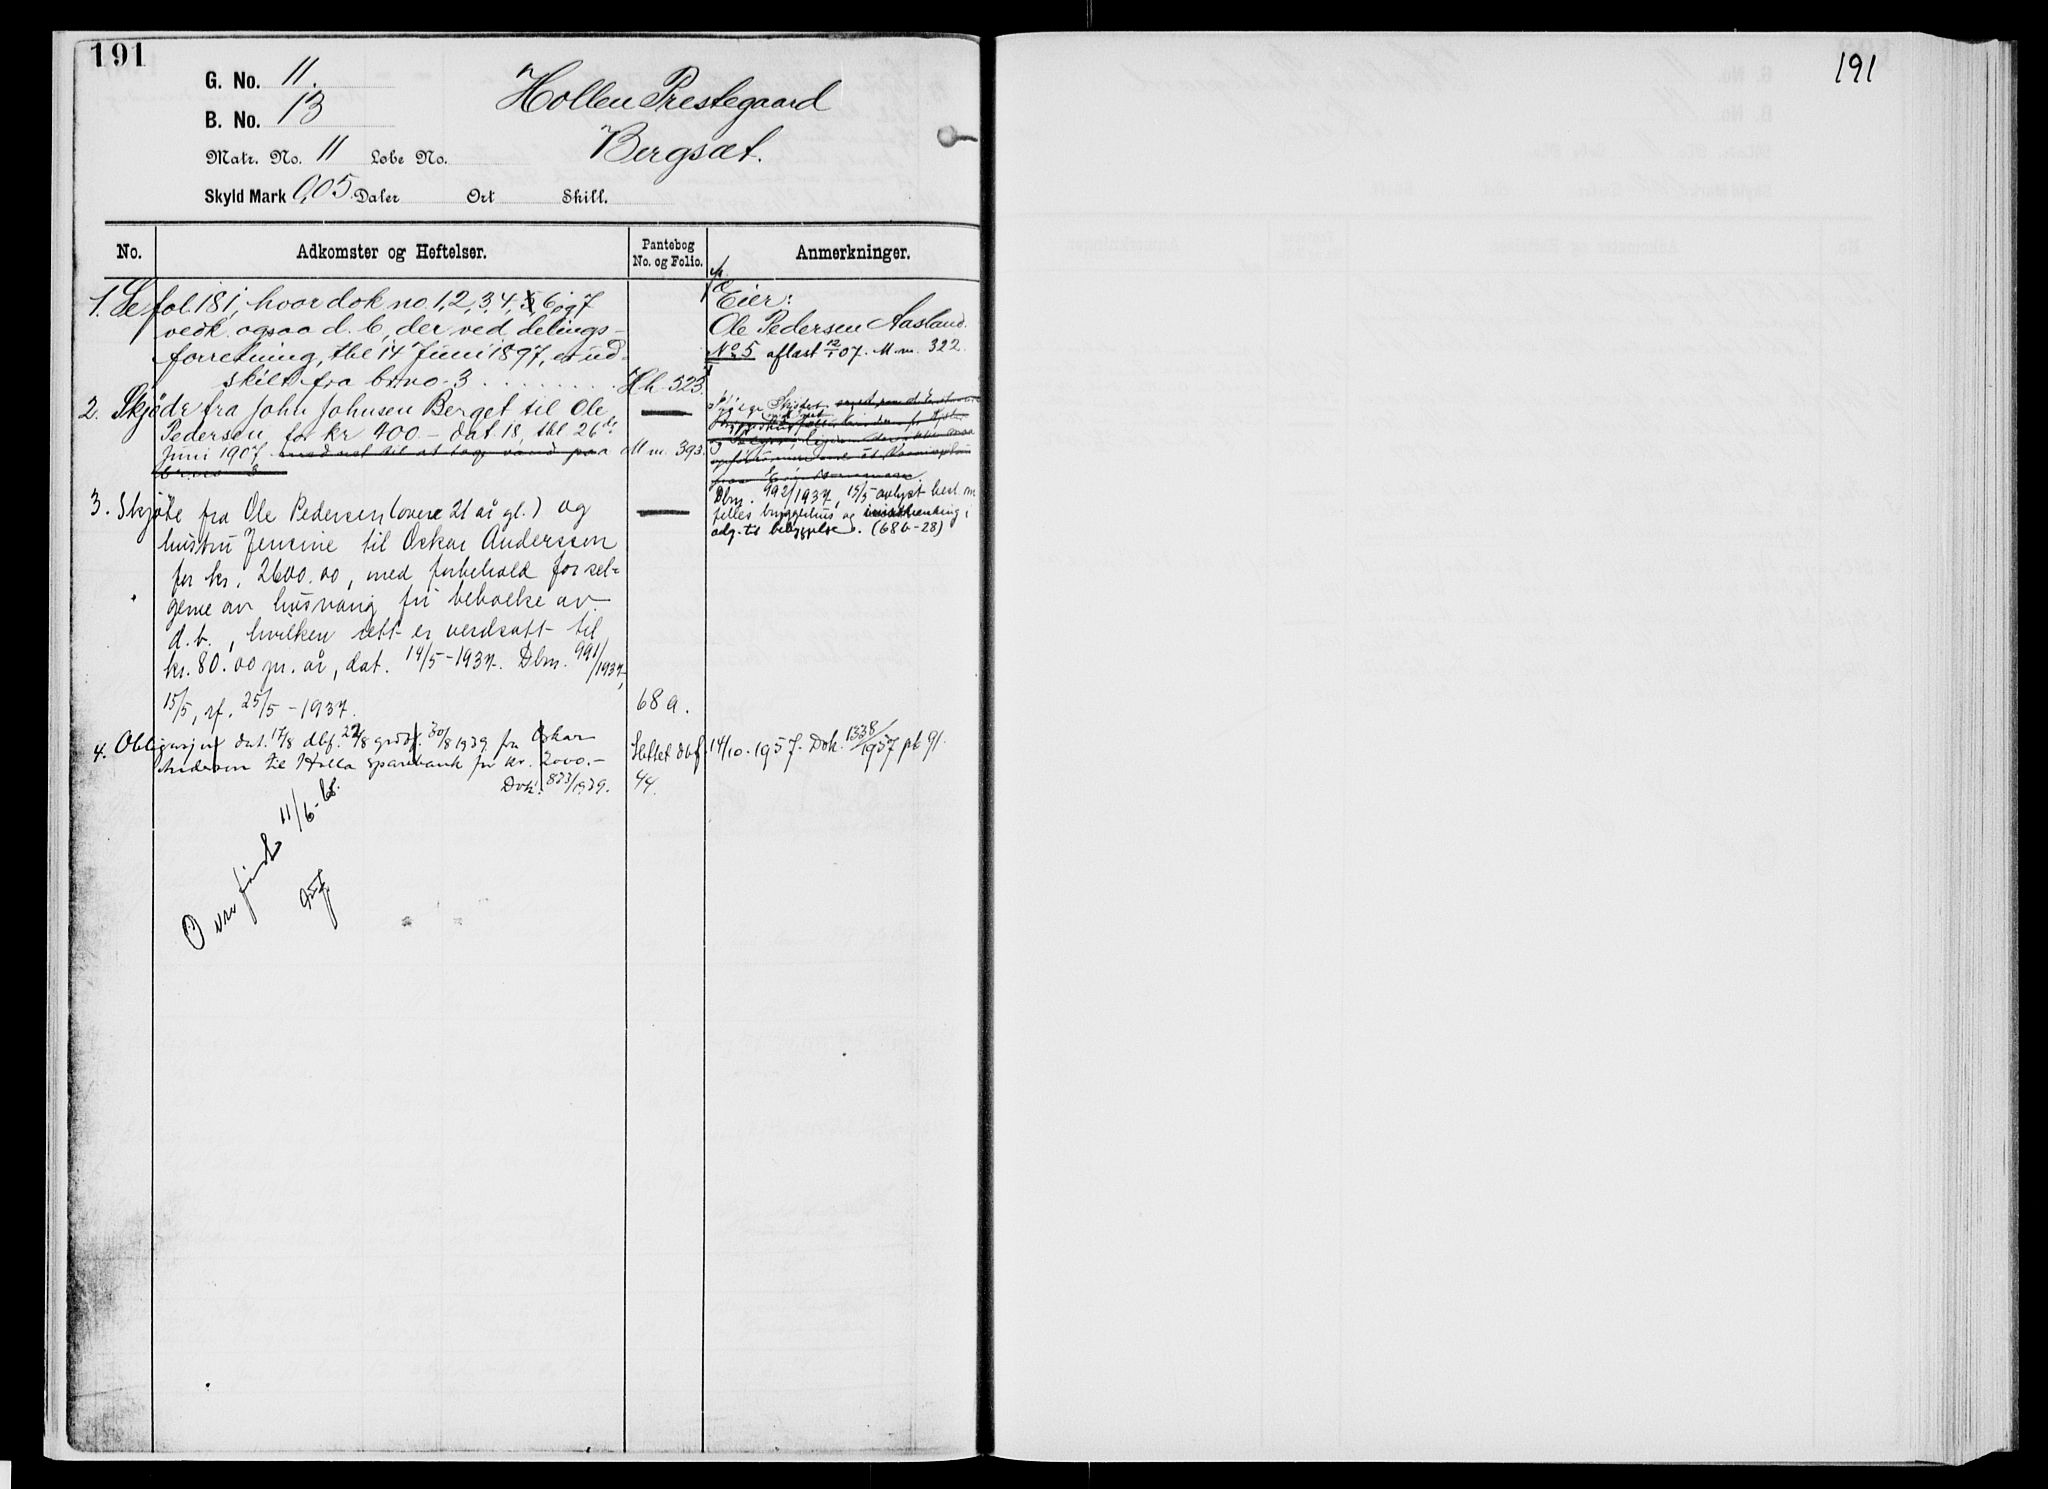 191
191
G. No. 11.
B. No. 13
Matr. No. 11 Løbe No.
Skyld Mark 0,05 Daler Ort Skill.
Hollen Prestegaard
Bergsæt.
No.
Adkomster og Heftelser.
Pantebog
No. og Folio.
Anmerkninger.
1. Se fol. 181, hvor dok no. 1, 2, 3, 4, 5, 6 og 7
vedk. ogsaa d. b., der ved delings-
forretning, thl 14 Juni 1897, er ud-
skilt fra br.no. 3 . . . . . . . . Hh. 523.
Eier:
Ole Pedersen Aasland.
No 5 aflæst 12/1 07. M m. 322.
2. Skjøde fra John Johnsen Berget til Ole
Pedersen for kr 400.- dat. 18, thl 26de
Juni 1907 med ret til at tage vand paa
br.no 3
M m. 393.
3. Skjøte fra Ole Pedersen (over 21 år gl.) og
hustru Jensine til Oskar Anderssen
for kr. 2600.00, med forbehold for sel-
gerne av husvær i fri behold av
d. b., hvilken rett er verdsatt til
kr. 80.00 pr. år, dat. 14/5-1937. Dbnr. 991/1937,
15/5, rf. 25/5-1937.
68 a.
Dbnr. 992/1937, 15/5 avlyst best. om
felles bryggehus og
adg. til bebyggelse. (68b-28)
4. Obligasjon dat. 17/8 dbf. 22/8 grbf. 30/8 1939 fra Oskar
Andersen til Holla Sparebank for kr. 2000.-
Dok. 823/1939.
44.
Slettet dbf. 14/10. 1957. Dok. 1338/1957 pb 91.
Overført 11/6-65.